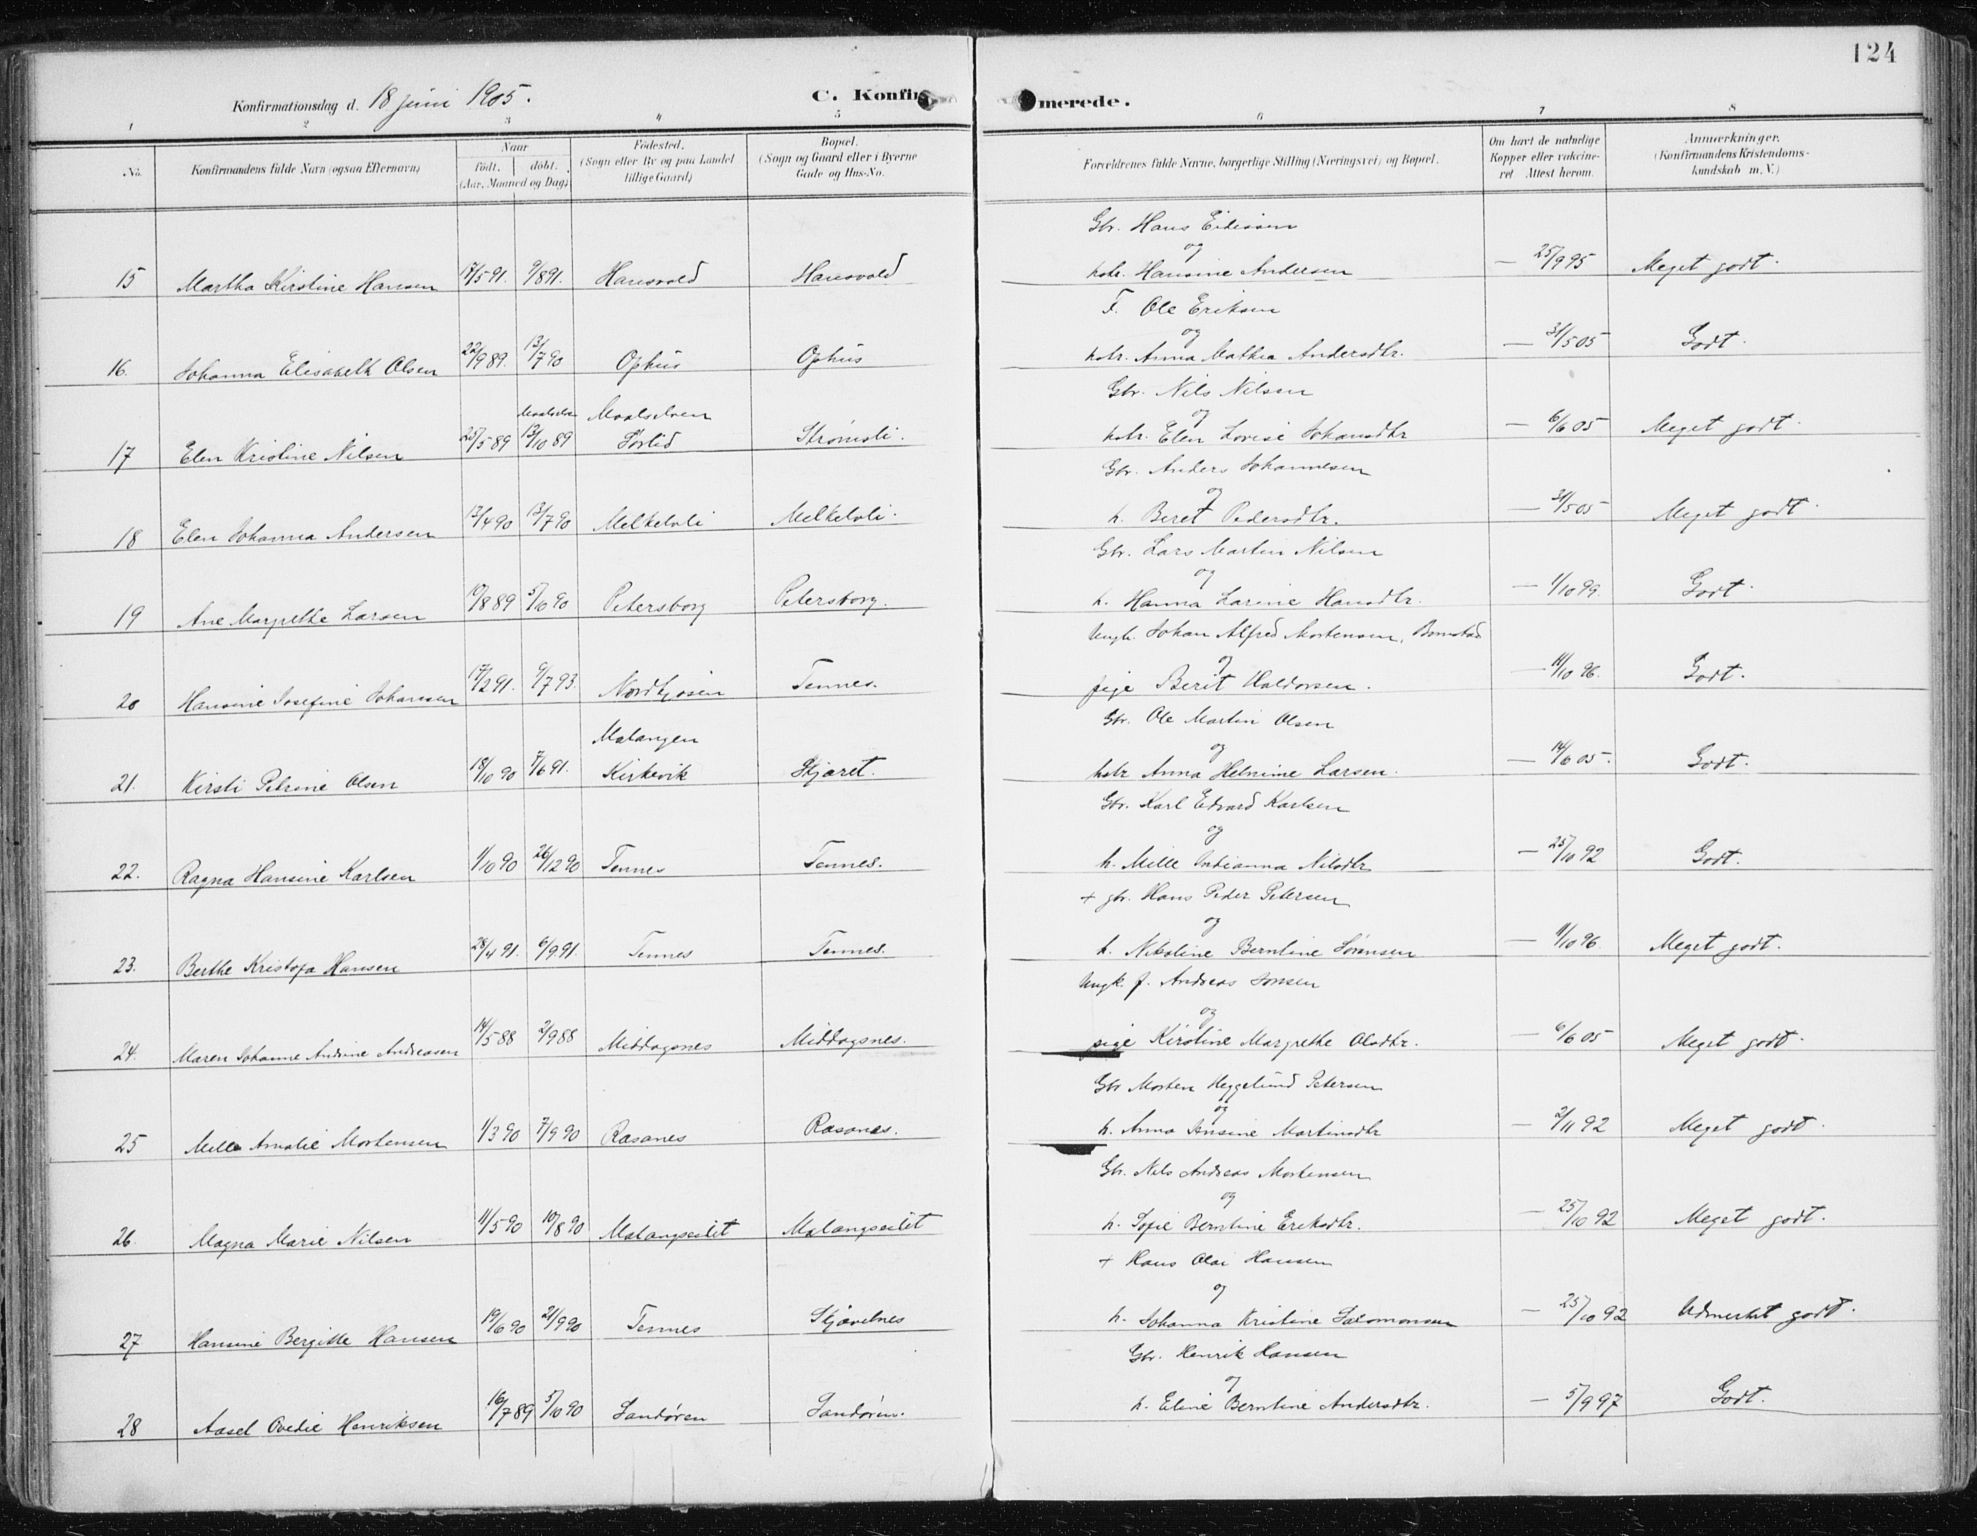 124
Konfirmationsdag d. 18 juni 1905.
C. Konfirmerede.
1 2 3 4 5 6 7 8
No. Konfirmandens fulde Navn (ogsaa Efternavn)
Naar født. døbt. (Aar, Maaned og Dag)
Fødested. (Sogn eller By og paa Landet tillige Gaard)
Bopæl. (Sogn og Gaard eller i Byerne Gade og Hus-No.
Forældrenes fulde Navne, borgerlige Stilling (Næringsvei) og Bopæl.
Om havt de naturlige Kopper eller vakcineret Attest herom.
Anmærkninger. (Konfirmandens Kristendomskundskab m. V.)
Gbr. Hans Eidissen
og
15 Martha Kirstine Hansen 17/5 91. 9/8 91. Hansvold Hansvold hstr. Hansine Andersen — 25/9 95 Meget godt.
F. Ole Eriksen
og
16. Johanna Elisabeth Olsen 22/9 89. 13/7 90 Ophus Ophus hstr. Anna Mathea Andersdtr. — 31/5 05 Godt.
Gbr. Nils Nilsen
Maalselven Maalselven og
17 Elen Kristine Nilsen 25/5 89 13/10 89 Fortid Strømsli. hstr. Elen Lovise Johansdtr — 6/6 05 Meget godt.
Gbr. Anders Johannesen
og
18 Elen Johanna Andersen 13/4 90 13/7 90 Melkelvli Melkelvli. h. Beret Pedersdtr. — 31/5 05 Meget godt.
Gbr. Lars Martin Nilsen
og
19 Ane Margrethe Larsen 19/8 89 5/10 90 Petersborg Petersborg. h. Hanna Larine Hansdtr. — 1/10 99. Godt.
Ungk. Johan Alfred Mortensen, Bomstad
og
20 Hansine Josefine Johansen 17/2 91. 9/7 93. Nordkjosen Tennes. pige Berit Haldorsen. — 11/10 96. Godt.
Gbr. Ole Martin Olsen
Malangen og
21. Kirsti Petrine Olsen 18/10 90 7/6 91. Kirkevik Skjæret. hstr Anna Helmine Larsen. — 14/6 05. Godt.
Gbr. Karl Edvard Karlsen
og
22. Ragna Hansine Karlsen 1/10 90 26/12 90 Tennes Tennes. h. Mille Indianna Nilsdtr — 25/10 92 Godt.
+ gbr. Hans Peder Petersen
og
23. Berthe Kristofa Hansen 28/4 91. 6/9 91. Tennes Tennes. h. Nikoline Berntine Sørensen — 11/10 96. Meget godt.
Ungk. f. Andreas Jonsen
og
24. Maren Johanne Andrine Andreasen 14/5 88 2/9 88 Middagsnes Middagsnes. pige Kirstine Margrethe Olsdtr. — 6/6 05 Meget godt.
Gbr Morten Heggelund Petersen
og
25 Mille Amalie Mortensen 1/3 90 7/9 90 Rasanes Rasanes. h. Anna Ansine Martinsdtr — 2/11 92 Meget godt.
Gbr. Nils Andreas Mortensen
og
26. Magna Marie Nilsen 11/5 90 10/8 90 Malangseilet Malangseilet h. Sofie Berntine Eriksdtr. — 25/10 92 Meget godt.
+ Hans Olai Hansen
og
27 Hansine Bergitte Hansen 19/6 90 21/9 90 Tennes Skjævelnes h. Johanna Kristine Salomonsen — 25/10 92 Udmerket godt.
Gbr. Henrik Hansen
og
28 Aasel Ovedie Henriksen 16/7 89 5/10 90 Sandøren Sandøren. h. Eline Berntine Andersdtr. — 5/9 97 Godt.